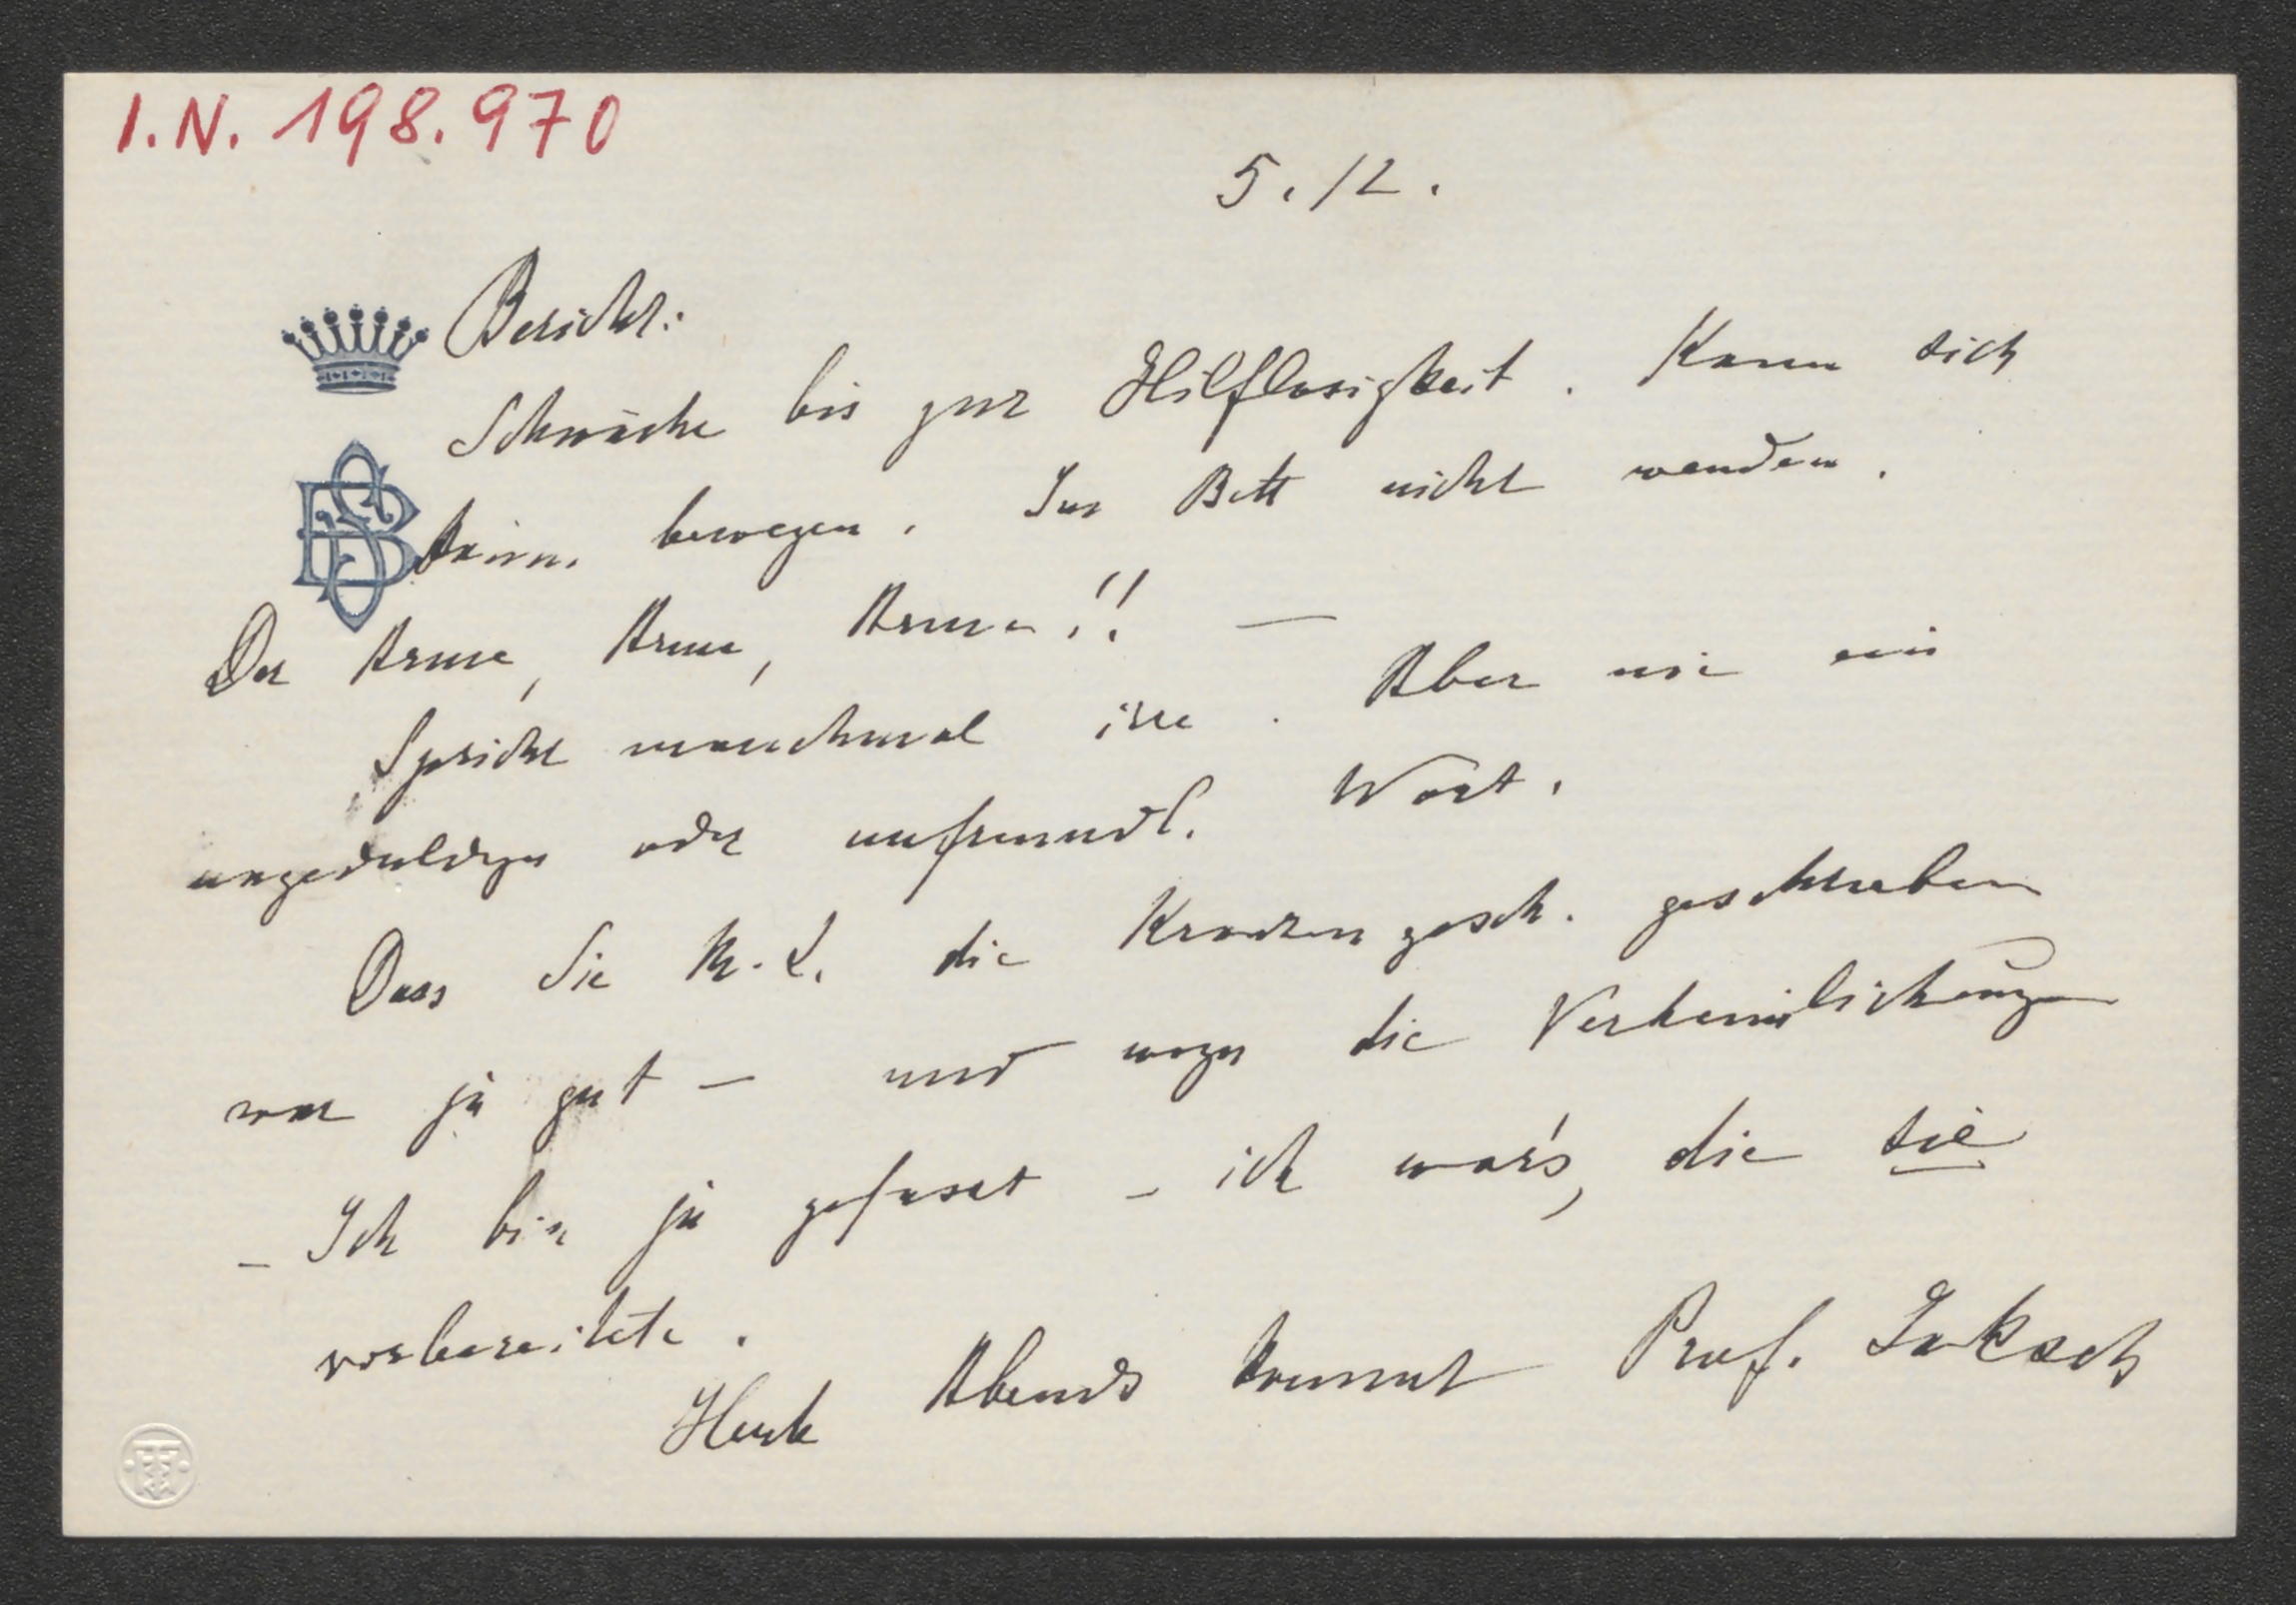 I.N. 198.970
5./2.
Bericht:
Schwäche bis zur Hilflosigkeit. Kann sich
kaum bewegen. Im Bett nicht wenden.
Der Arme, Arme, Arme!! —
Spricht manchmal irre. Aber nie ein
ungeduldiges oder unfreundl. Wort.
Dass Sie die Krankengesch. geschrieben
war ja gut – und wozu die Verheimlichungen
– Ich bin ja gefasst – ich war's, die sie
vorbereitete.
Heute Abends kommt Prof. Jaksch